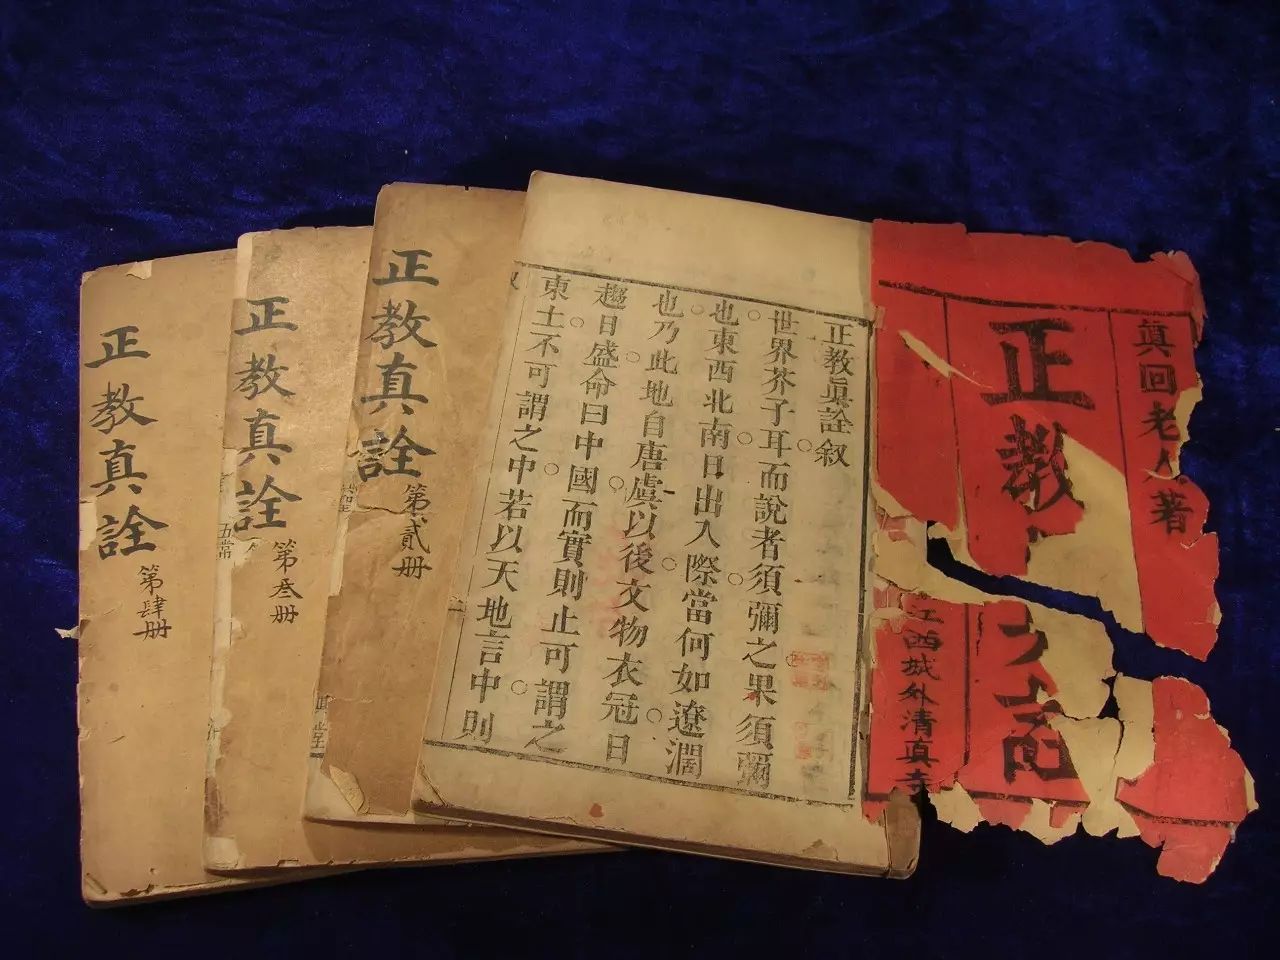 眞回老人著
正教眞詮
江西城外清真寺
正教眞詮敘
世界芥子耳而說者須彌之果須彌
也東西北南日出入際當何如遼濶
也乃此地自唐虞以後文物衣冠日
趨日盛命曰中國而實則止可謂之
東土不可謂之中若以天地言中則
正教真詮
第貳册
正教真詮
第叁册
五常
正教真詮
第肆册